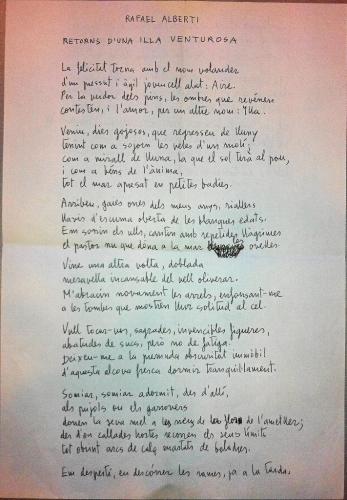 RAFAEL ALBERTI
RETORNS D'UNA ILLA VENTUROSA
La felicitat torna amb el nom volander
d'un puixant i àgil jovencell alat: Aire.
Per la verdor dels pins, les ombres que revénen
contesten, i l'amor, per un altre nom: Illa.
Veniu, dies gojosos, que regresseu de lluny
tenint com a sojorn les veles d'un molí;
com a mirall de lluna, la que el sol tirà al pou,
i com a béns de l'ànima,
tot el mar apresat en petites badies.
Arribeu, gaies ones dels meus anys, riallers
llavis d'escuma oberta de les blanques edats.
Em somin els ulls, cantin amb repetides llàgrimes
el pastor nu que dóna a la mar les ovelles.
Vine una altra volta, doblada
meravella incansable del vell oliverar.
M'abracin novament les arrels, enfonsant-me
a les tombes que mostren llur solitud al cel.
Vull tocar-vos, sagrades, invencibles figueres,
abatudes de sucs, però no de fatiga.
Deixeu-me a la premuda obscuritat immòbil
d'aquesta alcova fresca dormir tranquil·lament.
Somiar, somiar adormit, des d'allí,
als pujols on els garrovers
donen la seva mel a les neus de la flor de l'ametller;
des d'on callades hortes recorren els seus límits
tot obrint arcs de calç mastats de balades.
Em desperto, en descórrer les rames, ja a la tarda,